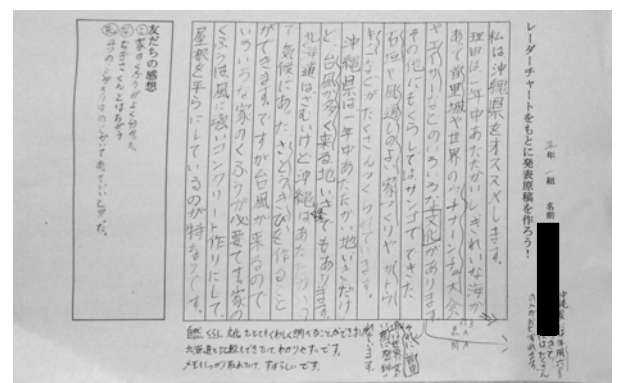 レーダーチャートをもとに発表原稿を作ろう！
五年 一組 名前
私は沖縄県をオススメします。
理由は一年中あたたかいしきれいな海が
あて首里城や世界のウチナーンチュ大会
やエイサーなどのいろいろな文化があります。
その他にもくらしてはサンゴでできた
石垣や風通しのよい家づくりや
などがたくさんつくられてます。
沖縄県は一年中あたたかい地いきだけ
ど、台風が多く来る地いきでもあります。
北海道はさむいけど沖縄はあたたかい
て気候にあったさとうきびを作ること
ができます。ですが台風が来るので
いろいろな家のくふうが必要です。家の
くふうは風に強いコンクリート作りにして、
屋根を平らにしているのが特ちょうです。
友だちの感想
家のくふうがよく分せた。
自然、くらし、文化をとてもくわしく調べることができました
北海道と比較もできていて、わかりやすいです。
メモもしっかり取れていて、すばらしいです。